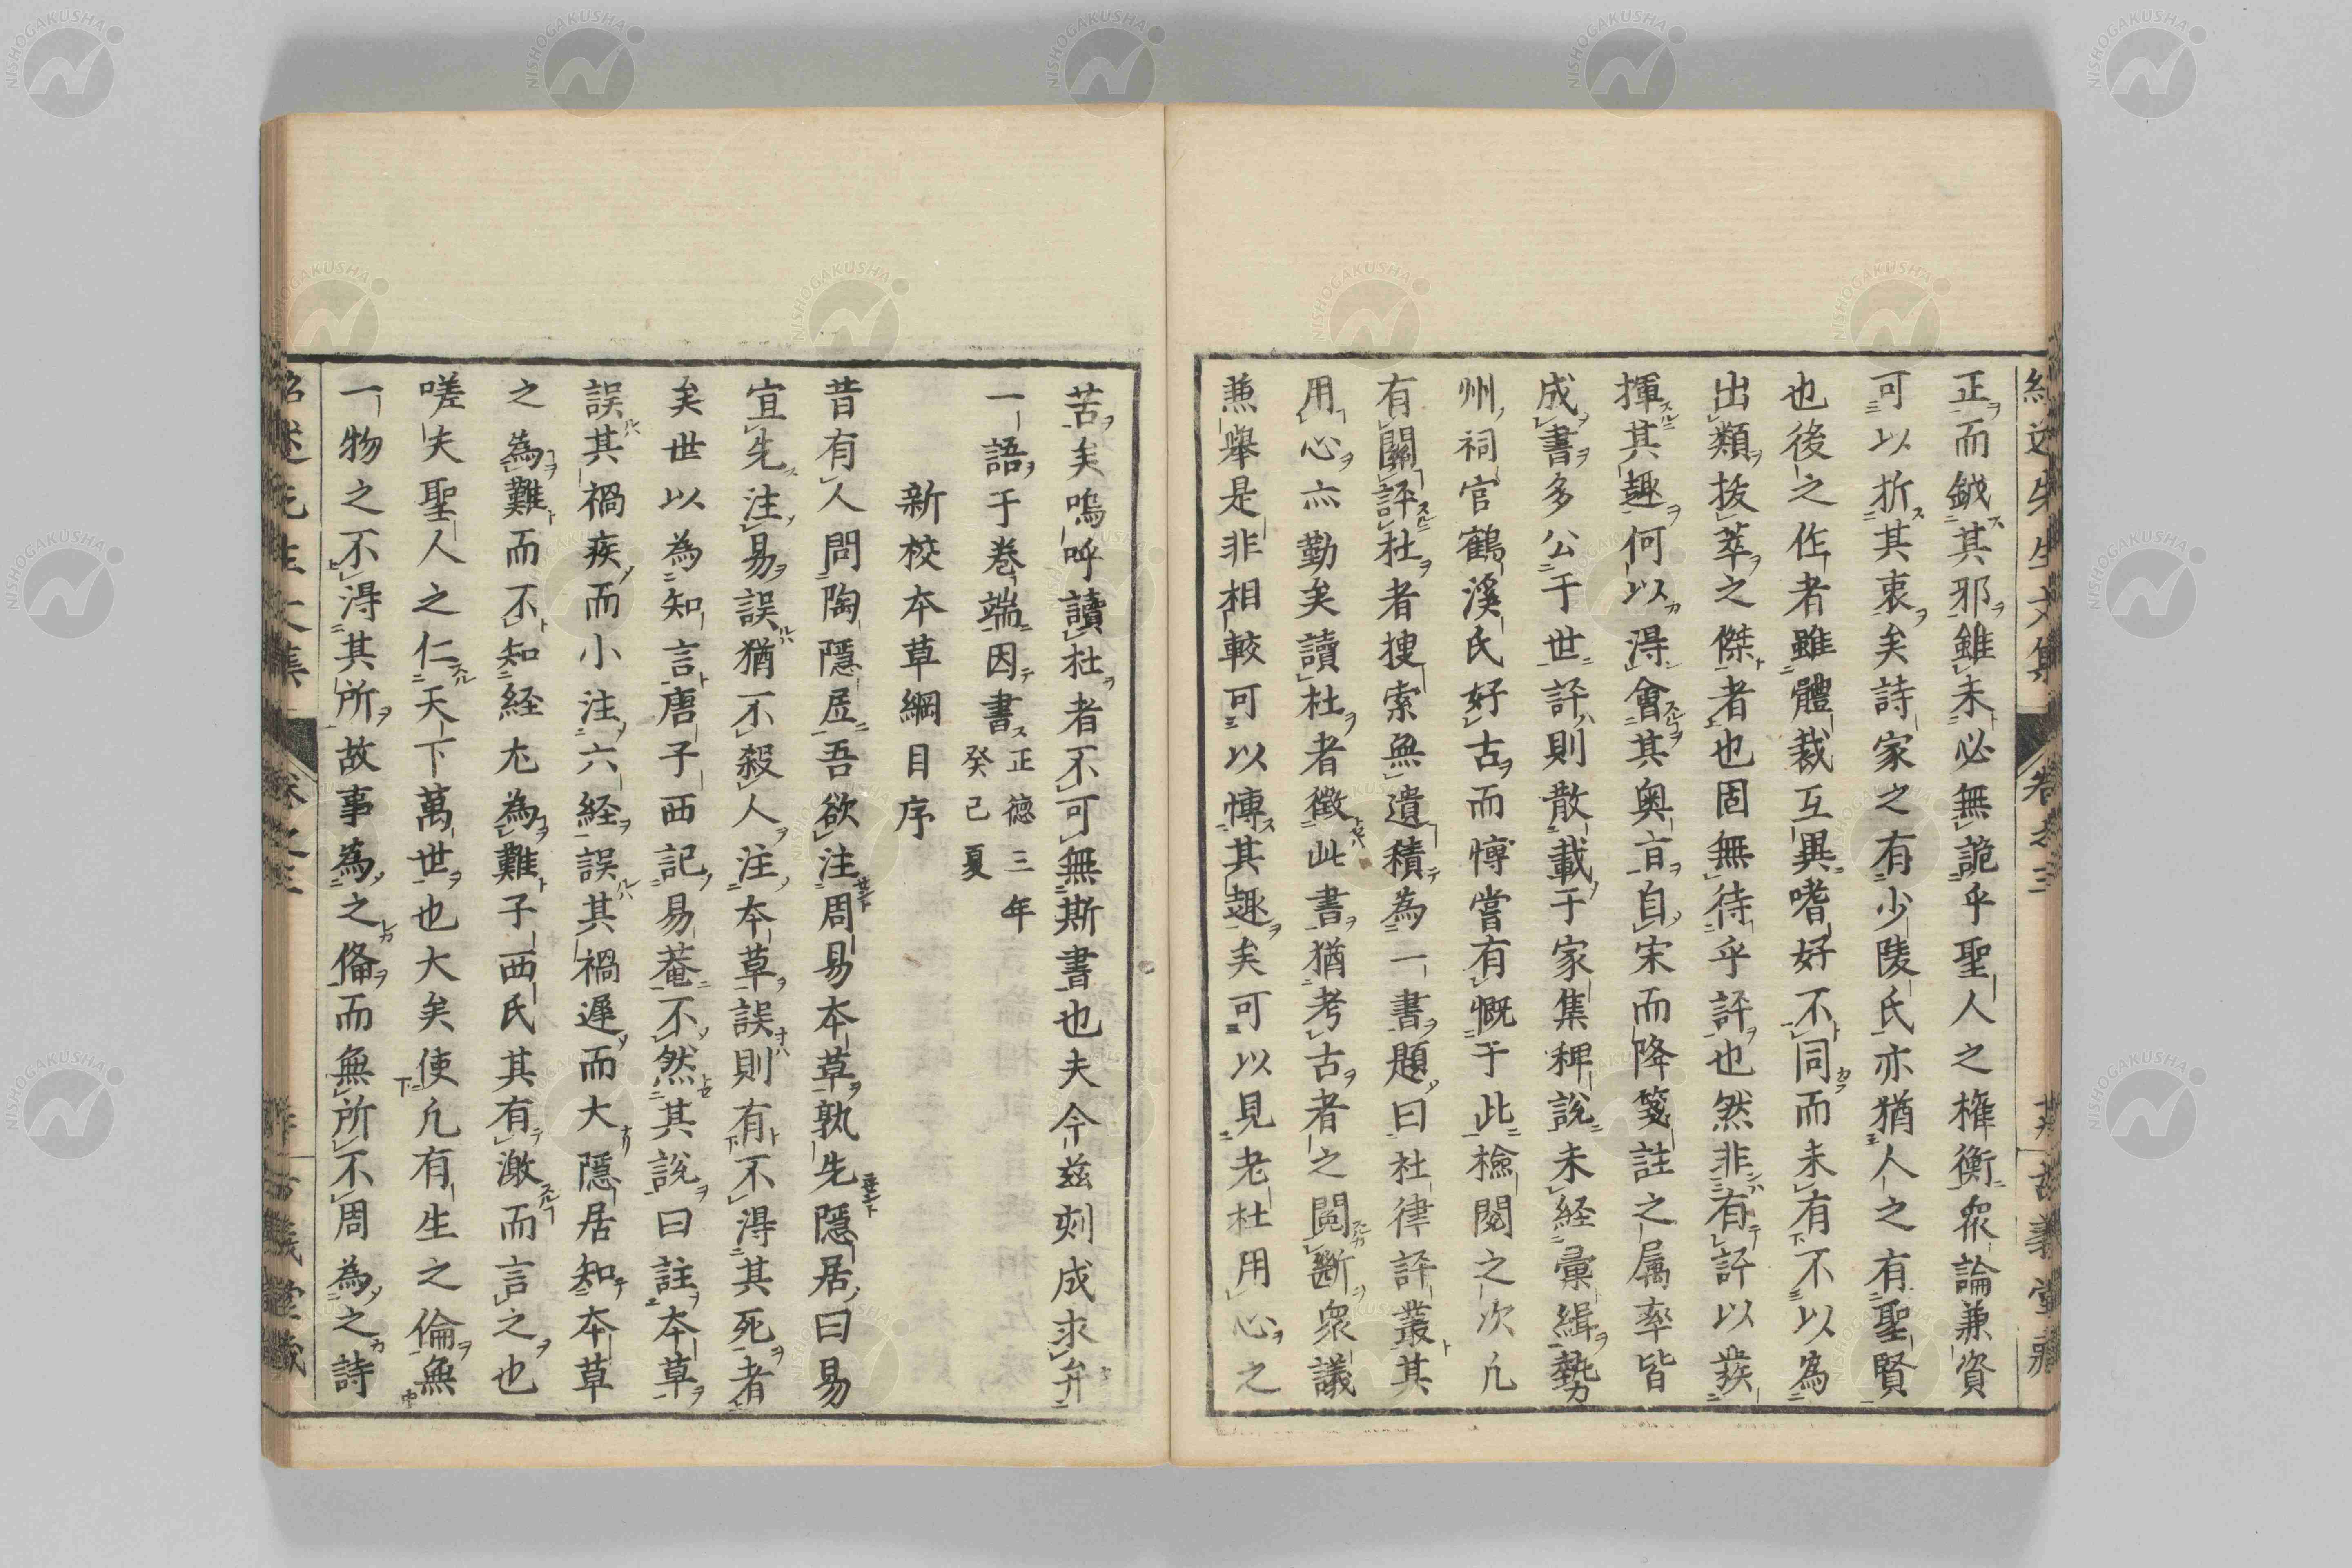 正而鉞其邪雖未必無詭乎聖人之権衡衆論兼資
可以折其衷矣詩家之有少陵氏亦猶人之有聖賢
也後之作者雖體裁互異嗜好不同而未有不以為
出類拔萃之傑者也固無待乎評也然非有評以發
揮其趣何以得會其奥旨自宋而降箋註之属率皆
成書多公于世評則散載于家集稗説未経彙緝勢
州祠官鶴溪氏好古而慱嘗有慨于此檢閲之次凡
有關評杜者捜索無遺積為一書題曰杜律評叢其
用心亦勤矣讀杜者徴此書猶考古者之閲斷衆議
兼舉是非相較可以慱其趣矣可以見老杜用心之
苦矣嗚呼讀杜者不可無斯書也夫今茲刻成求弁
一語于巻端因書正徳三年癸巳夏
新校本草綱目序
昔有人問陶隠居吾欲注周易本草孰先隠居曰易
宜先注易誤猶不殺人注本草誤則有不得其死者
矣世以為知言唐子西記易菴不然其説曰註本草
誤其禍疾而小注六経誤其禍遲而大隠居知本草
之為難而不知経尤為難子西氏其有激而言之也
嗟夫聖人之仁天下萬世也大矣使凡有生之倫無
一物之不得其所故事為之俻而無所不周為之詩
紹述先生文集 巻之三 古義堂藏